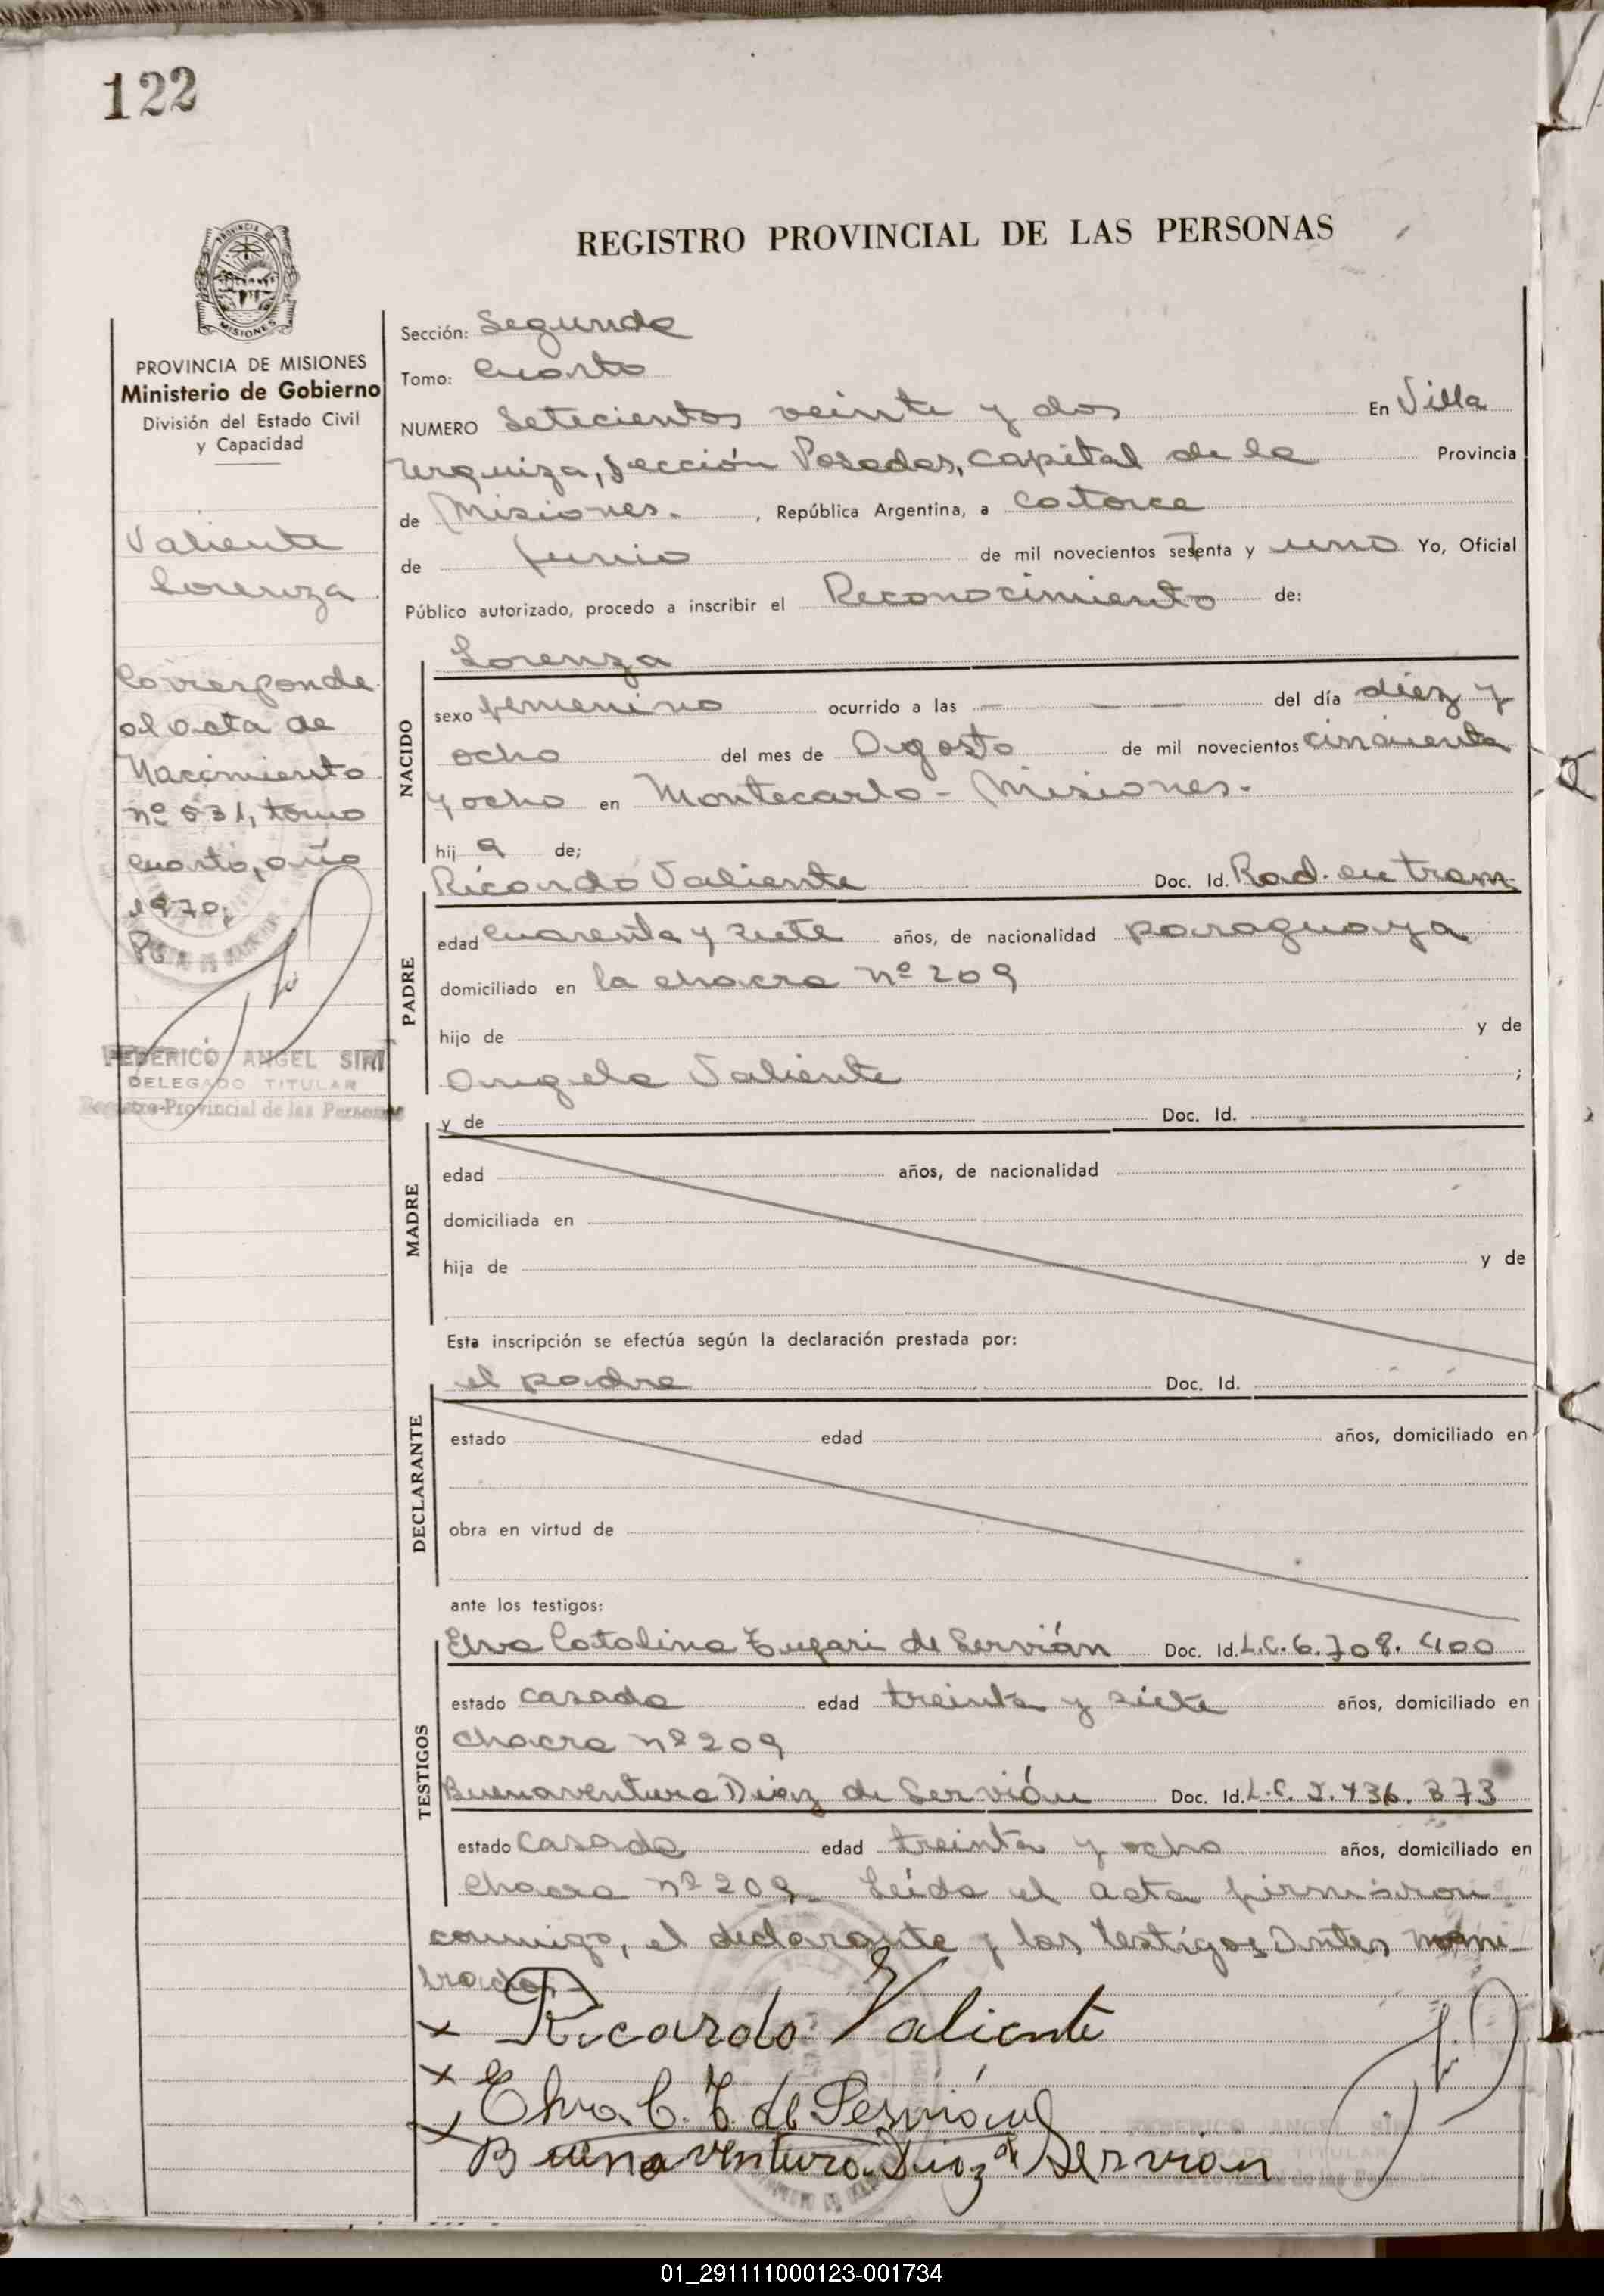 122
REGISTRO PROVINCIAL DE LAS PERSONAS
PROVINCIA DE MISIONES
PROVINCIA DE MISIONES
Ministerio de Gobierno
División del Estado Civil
y Capacidad
Valiente
Lorenza
Corresponde
al acta de
Nacimiento
nº 531, tomo
cuarto, año
1970,
FEDERICO ANGEL SIRI
DELEGADO TITULAR
Registro Provincial de las Personas
Sección: Segunda
Tomo: Cuarto
NUMERO Setecientos veinte y dos En Villa
Urquiza, sección Posadas, capital de la Provincia
de Misiones. , República Argentina, a catorce
de junio de mil novecientos setenta y uno Yo, Oficial
Público autorizado, procedo a inscribir el Reconocimiento de:
NACIDO
Lorenza
sexo femenino ocurrido a las — — — del día diez y
ocho del mes de Agosto de mil novecientos cincuenta
y ocho en Montecarlo - Misiones.
hij a de;
PADRE
Ricardo Valiente Doc. Id. Rad. en tram.
edad cuarenta y siete años, de nacionalidad paraguaya
domiciliado en la chacra nº 209
hijo de y de
Angela Valiente ;
MADRE
y de Doc. Id.
edad años, de nacionalidad
domiciliada en
hija de y de
Esta inscripción se efectúa según la declaración prestada por:
DECLARANTE
el padre Doc. Id.
estado edad años, domiciliado en
obra en virtud de
ante los testigos:
TESTIGOS
Elva Catalina de Servián Doc. Id. L.C. 6.708.400
estado casada edad treinta y siete años, domiciliado en
chacra nº 209
Buenaventura Diaz de Servián Doc. Id. L.C. 2.436.373
estado casada edad treinta y ocho años, domiciliado en
chacra nº 209. Leída el acta firmaron
conmigo, el declarante y los testigos antes
Ricardo Valiente
Elva C. T. de Servián
Buenaventura Diaz de Servian
FEDERICO ANGEL SIRI
DELEGADO TITULAR
01_291111000123-001734